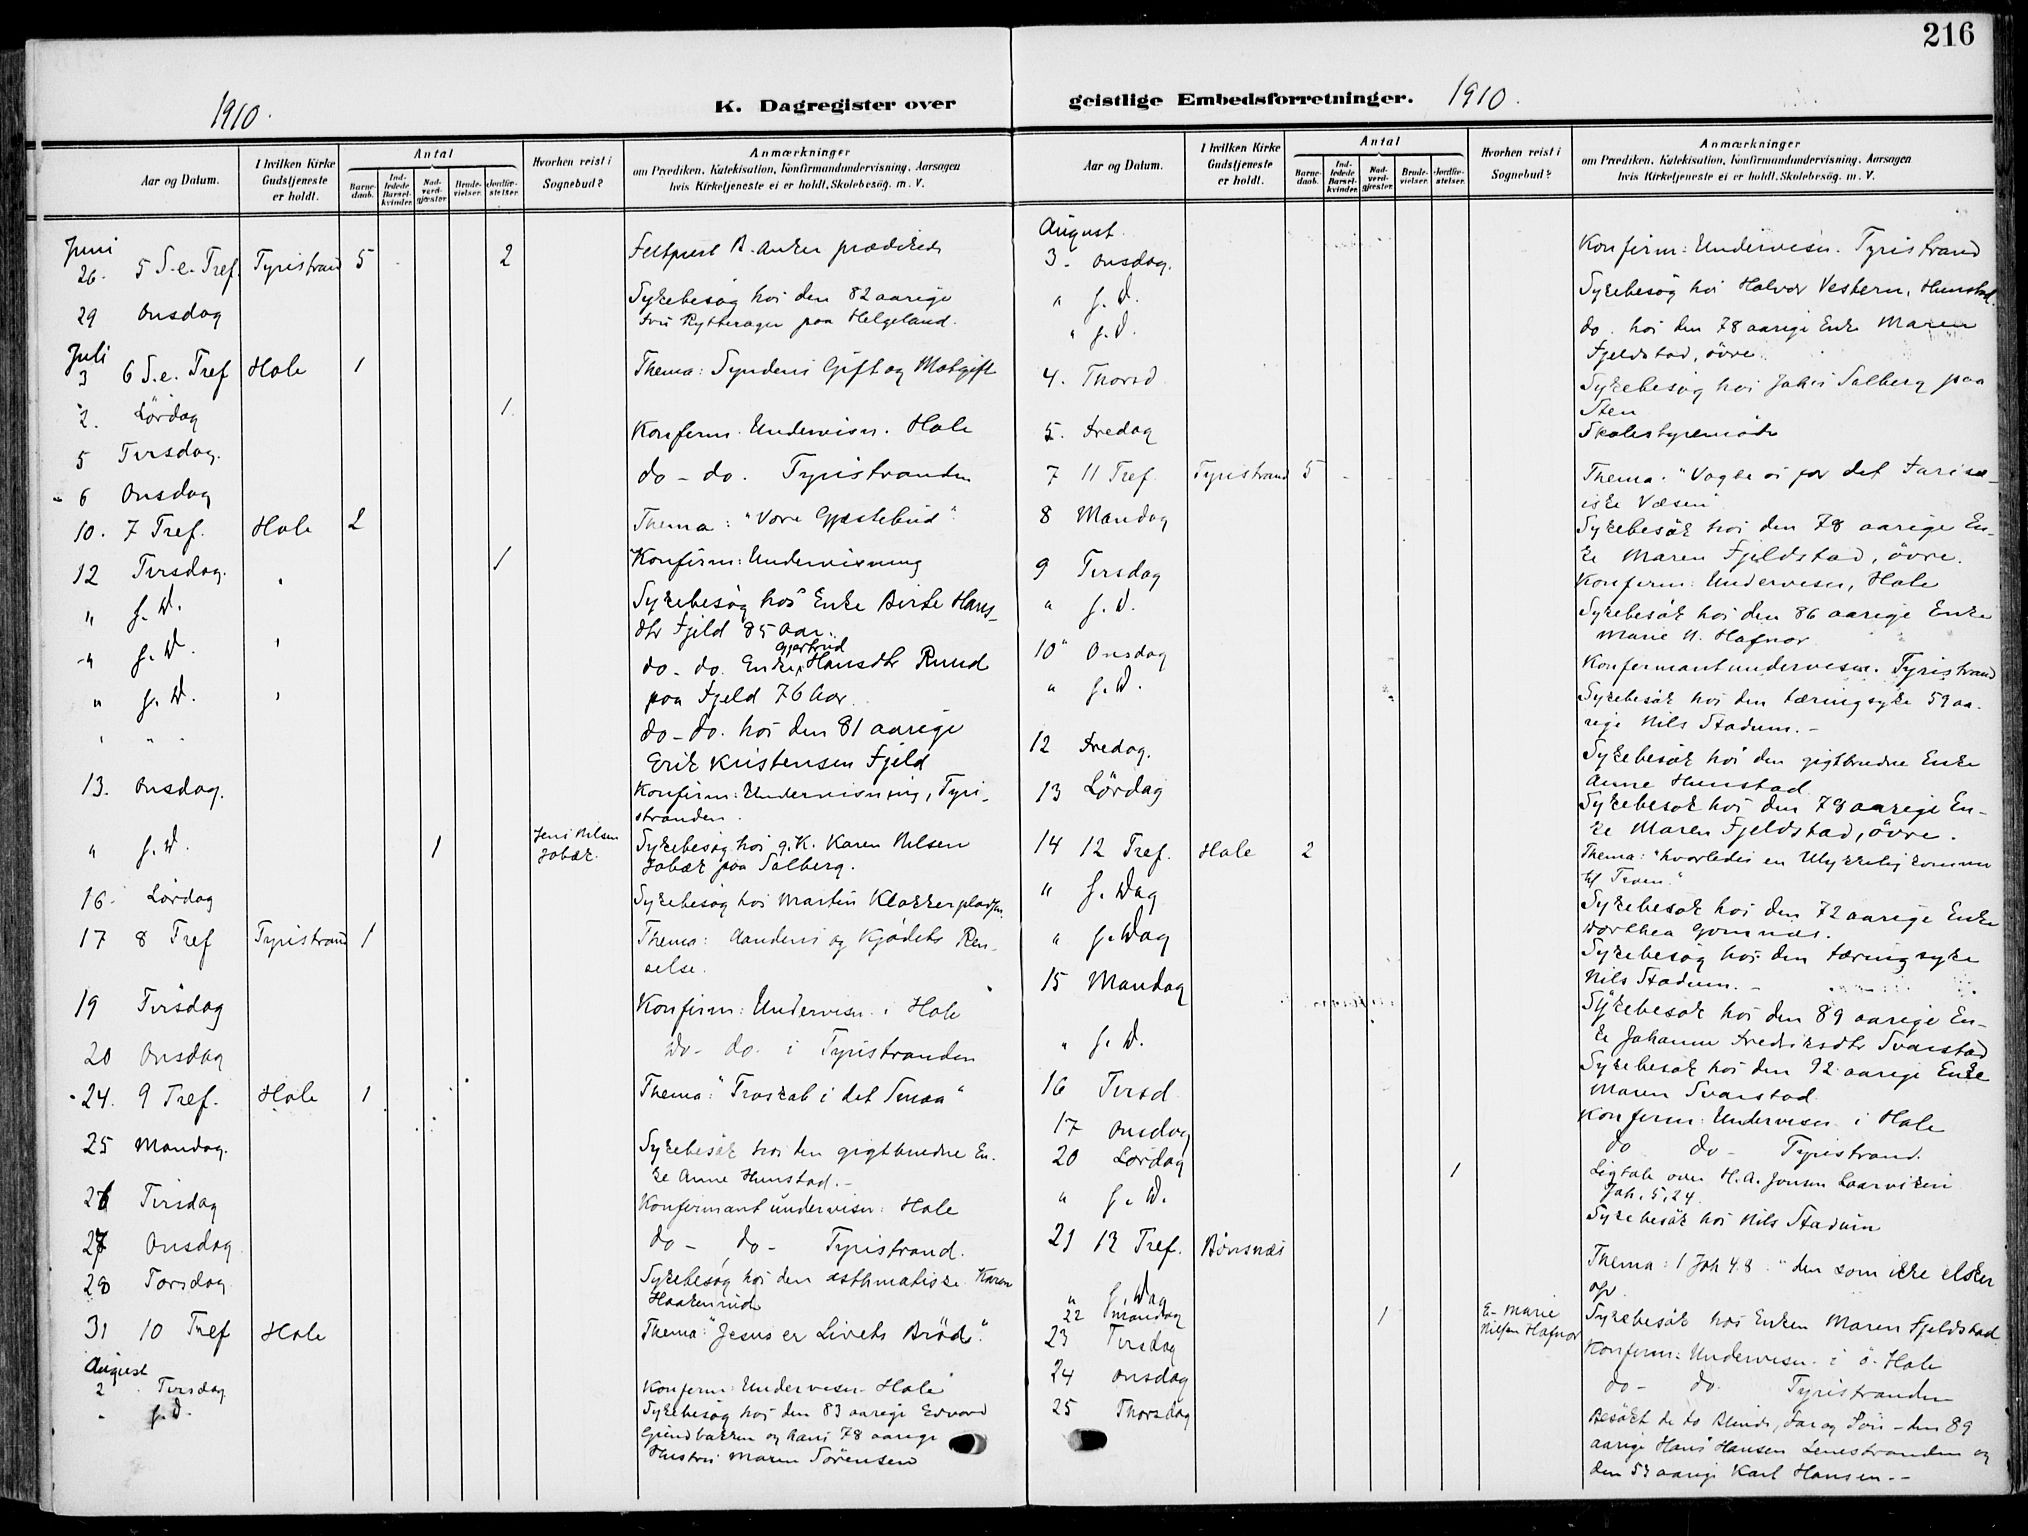 216
1910.
K. Dagregister over
geistlige Embedsforretninger.
1910.
Aar og Datum.
I hvilken Kirke Gudstjeneste er holdt.
Antal
Barnedaab.
Indledede Barselkvinder.
Nadverdgjæster.
Brudevielser.
Jordfæstelser.
Hvorhen reist i Sognebud?
Anmærkninger
om Prædiken, Katekisation, Konfirmandundervisning, Aarsagen
hvis Kirketjeneste ei er holdt, Skolebesøg. m. V.
Juni
26. 5 S. e. Tref. Tyristrand 5 2 Feltprest B. Anker prædikede
29 Onsdag Sykebesøg hos den 82 aarige
Fru Rytterager paa Helgeland.
Juli
3 6 S. e. Tref Hole 1 Thema: Syndens Gift og Motgift
2. Lördag 1
5 Tirsdag. Konfirm. Undervisn. Hole
6 Onsdag do - do. Tyristranden
10. 7 Tref. Hole 2 Thema: "Vore Gjæstebud".
12 Tirsdag. 1 Konfirm: Undervisning
" s. D. Sykebesøg hos Enke Berte Hans-
dtr Fjeld 85 Aar..
" s. D. do - do. Enke Gjertrud Hansdtr Rund
paa Fjeld 76 Aar.
" s. D. do - do. hos den 81 aarige
Erik Kristensen Fjeld
13. Onsdag. Konfirm: Undervisning, Tyri-
stranden.
" s. D. 1 Jens Nilsen Sykebesøg hos g. K. Karen Nilsen
paa Solberg.
16. Lördag Sykebesøg hos Martin Klokkerpladsen
17 8 Tref Tyristrand 1 Thema: Aandens og Kjødets Ren-
selse.
19 Tirsdag Konfirm: Undervisn. i Hole
20 Onsdag Do - do. i Tyristranden
24. 9 Tref. Hole 1 Thema: "Troskab i det Smaa"
25 Mandag. Sykebesök hos den gigtbrudne En-
ke Anne Hunstad. -
26 Tirsdag Konfirmantundervisn: Hole
27 Onsdag do - do - Tyristrand.
28 Torsdag Sykebesøg hos den asthmatiske Karen
Haakenrud
31 10 Tref Hole Thema: "Jesus er Livets Bröd".
August
2 Tirsdag Konfirm: Undervisn. Hole
" s. D. Sykebesøg hos den 83 aarige Edvard
Grindbakken og hans 78 aarige
Hustru Maren Sörensen
Aar og Datum.
I hvilken Kirke Gudstjeneste er holdt.
Antal
Barnedaab.
Indledede Barselkvinder.
Nadverdgjæster.
Brudevielser.
Jordfæstelser.
Hvorhen reist i Sognebud?
Anmærkninger
om Prædiken, Katekisation, Konfirmandundervisning, Aarsagen
hvis Kirketjeneste ei er holdt, Skolebesøg. m. V.
August.
3. Onsdag. Konfirm: Undervisn. Tyristrand
" s. D. Sykebesøg hos Halvor Vestern, Hunstad.
" s. D. do. hos den 78 aarige Enke Maren
Fjeldstad, övre.
4. Thorsd Sykebesøg hos Johs Solberg paa
Sten
5. Fredag Skolestyremöde
7 11 Tref. Tyristrand 5 Thema: "Vogte os for det Farisæ-
iske Væsen"
8 Mandag Sykebesök hos den 78 aarige En-
ke Maren Fjeldstad, övre.
9 Tirsdag Konfirm: Undervisn, Hole
" s. D. Sykebesök hos den 86 aarige Enke
Marie N. Hafnor
10 Onsdag Konfirmantundervisn. Tyristrand
" s. D. Sykebesök hos den tæringsyke 59 aa-
rige Nils Stadum. -
12 Fredag. Sykebesök hos den gigtbrudne Enke
Anne Hunstad
13 Lördag Sykebesök hos den 78 aarige En-
ke Maren Fjeldstad, övre.
14 12 Tref. Hole 2 Thema: "hvorledes en Ulykkelig kommer
til Troen."
" s. Dag Sykebesök hos den 72 aarige Enke
Dorthea Gomnæs.
" s. Dag Sykebesøg hos den tæringsyke
Nils Stadum. -
15 Mandag Sykebesök hos den 89 aarige En-
ke Johanne Fredriksdtr Svarstad
" s. D. Sykebesök hos den 92 aarige Enke
Maren Svarstad
16 Tirsd Konfirm: Undervisn. i Hole
17 Onsdag do do - Tyristrand.
20 Lördag 1 Ligtale over H. A. Jonsen Laarviken
Joh. 5, 24.
" s. D. Sykebesök hos Nils Stadum
21 13 Tref. Bönsnæs Thema: 1 Joh 4.8. "den som ikke elsker
osv
" s. Dag Sykebesök hos Enken Maren Fjeldstad
22 Mandag 1 E. Marie Nilsen Hafnor
23 Tirsdag Konfirm: Undervisn. i Hole
24 Onsdag do - do. Tyristranden
25 Thorsdag Besökt de to Blinde, Far og Sön - den 89
aarige Hans Hansen Lenestranden og
den 53 aarige Karl Hansen. -